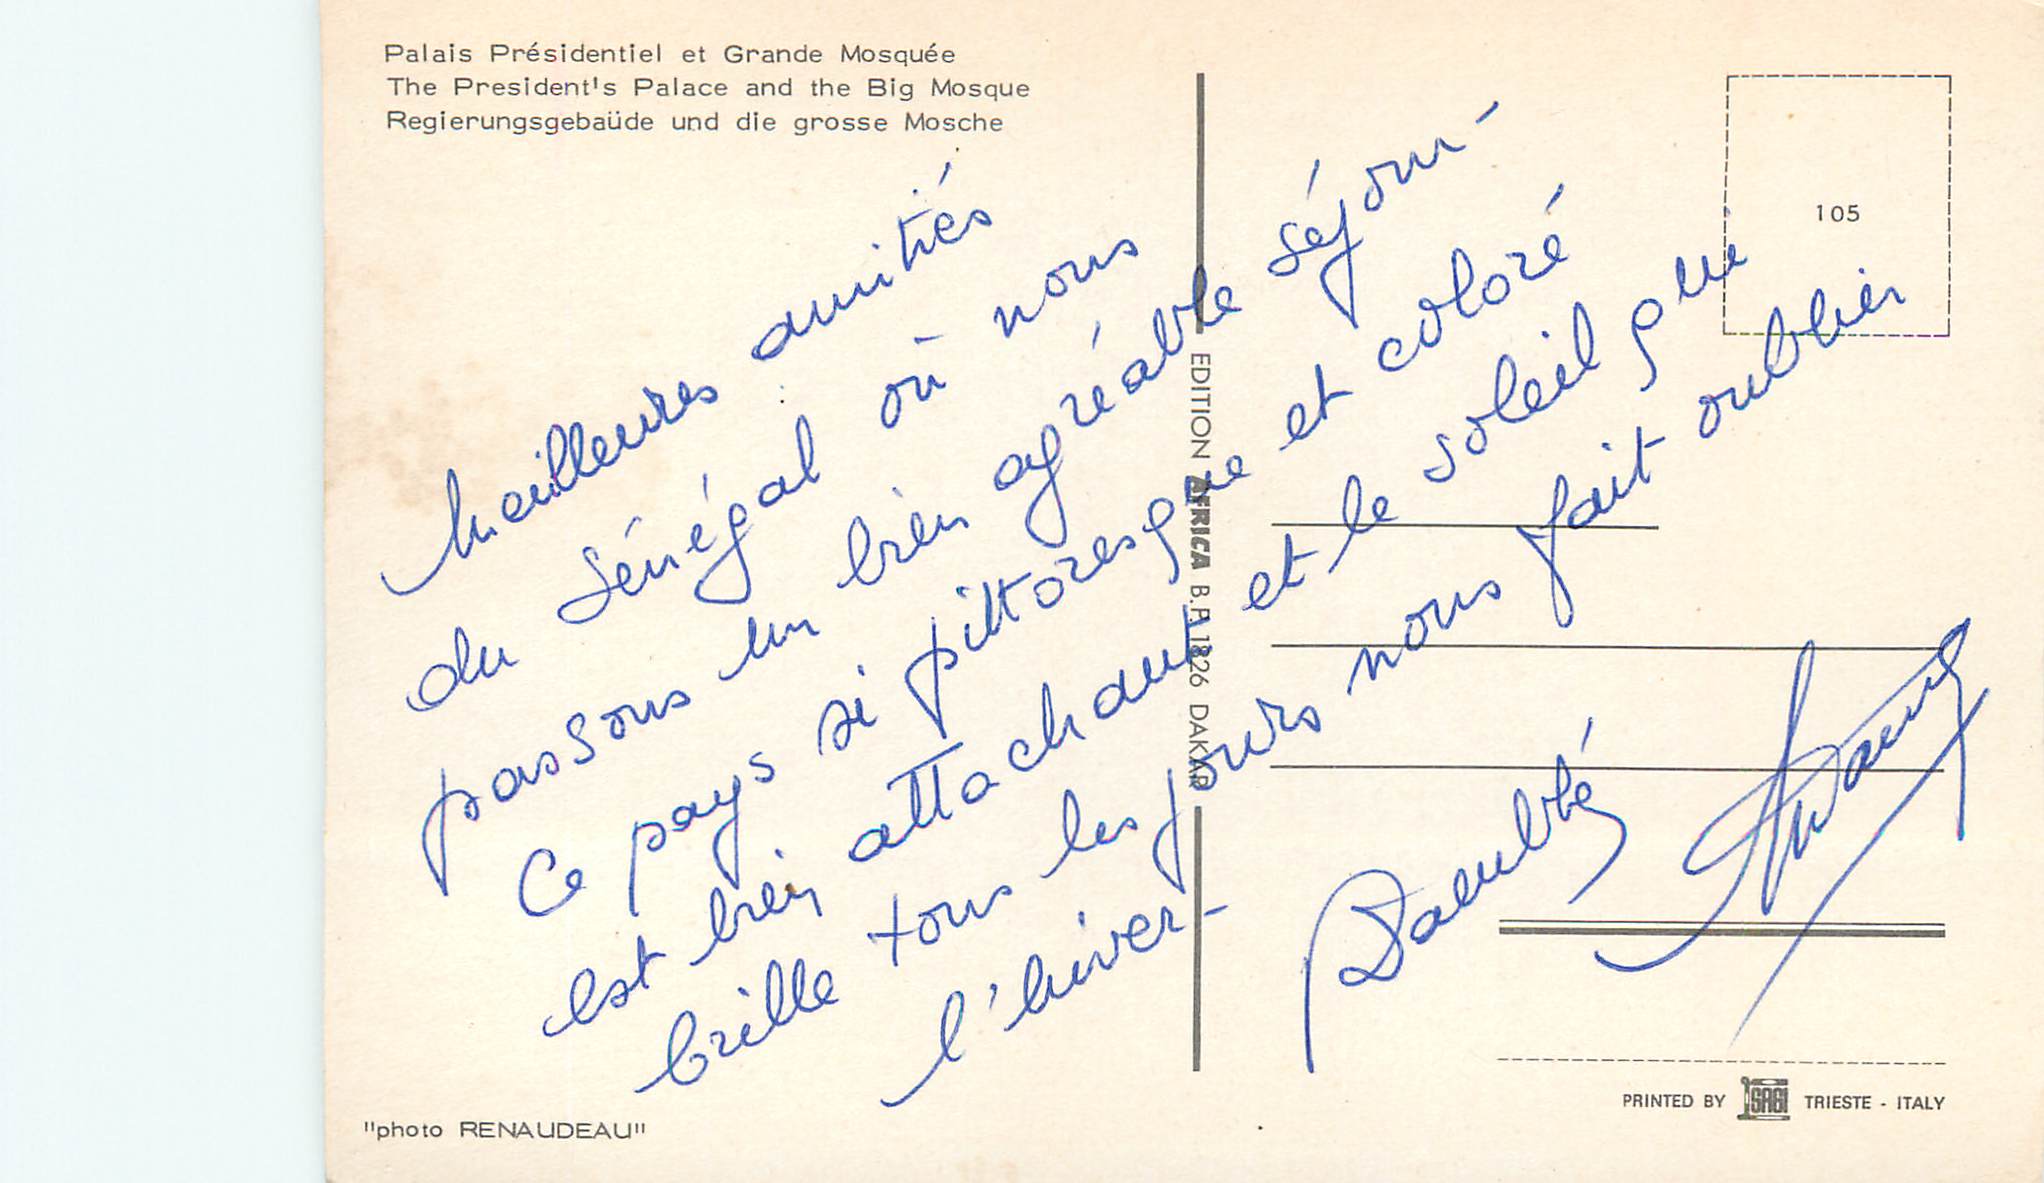 Palais Présidentiel et Grande Mosquée
The President's Palace and the Big Mosque
Regierungsgebaüde und die grosse Mosche
Meilleures amitiés
du Sénégal où nous
passons un bien agréable séjour -
Ce pays si pittoresque et coloré
est bien attachant et le soleil qui
brille tous les jours nous fait oublier
l'hiver -
EDITION AFRICA B.P. 1826 DAKAR
105
"photo RENAUDEAU"
PRINTED BY SAGI TRIESTE - ITALY